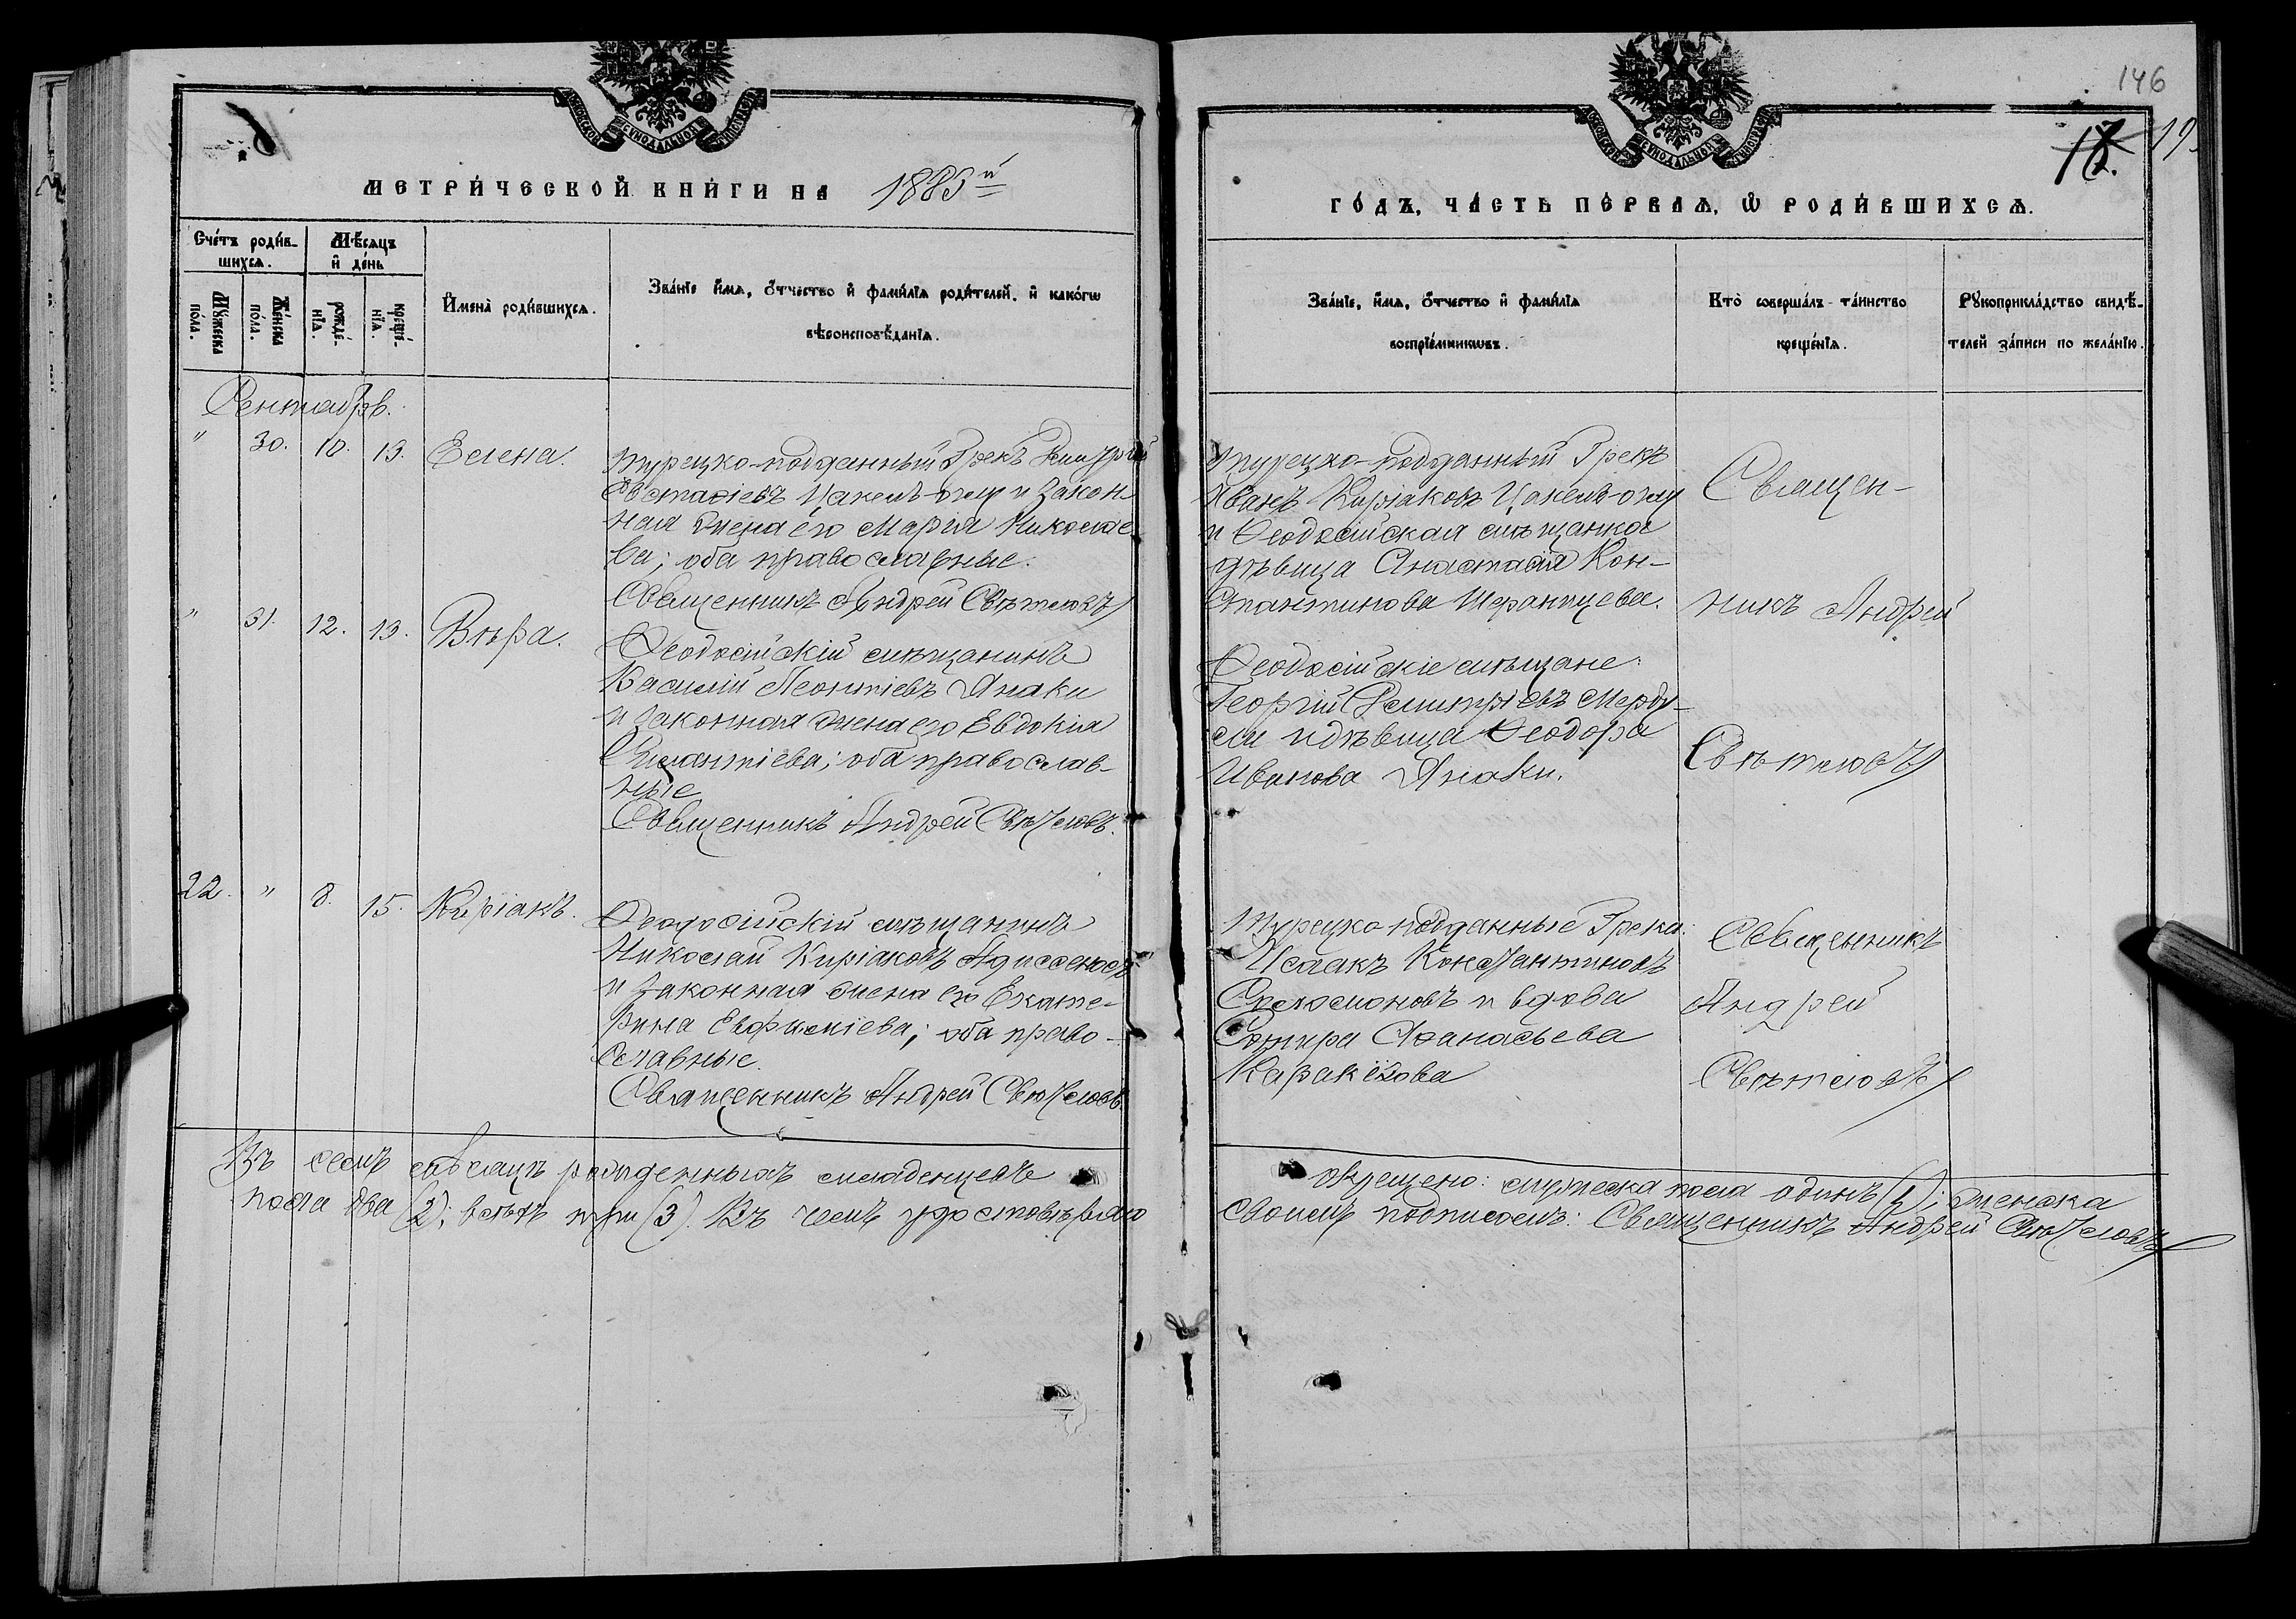 146
19
МЕТРИЧЕСКОЙ КНИГИ НА 1883й
ГОДЪ, ЧАСТЬ ПЕРВАЯ, Ѡ РОДИВШИХСЯ.
Счетъ родив-
шихся.
Мѣсяцъ
и день
Мужеска
пола.
Женска
пола.
рожде-
нія.
креще-
нія.
Имена родившихся.
Званіе имя, отчество и фамилія родителей, и какогѡ
вѣроисповѣданія.
Званіе, имя, отчество и фамилія
воспріемниковъ.
Кто совершалъ таинство
крещенія.
Рукоприкладство свидѣ-
телей записи по желанію.
Сентябрь.
" 30. 10. 13. Елена.
Турецко-подданный Грекъ Димитрій
Евстафіевъ Цакелъ-оглу и закон-
ная жена его Марія Николае-
ва; оба православные.
Священникъ Андрей Свѣтловъ
Турецко-подданный Грекъ
Иванъ Киріаковъ Цакелъ-оглу
и Ѳеодосійская мѣщанка
дѣвица Анастасія Кон-
стантинова
Священ-
никъ Андрей
Свѣтловъ
" 31. 12. 13. Вѣра.
Ѳеодосійскій мѣщанинъ
Василій Леонтіевъ Япаки
и законная жена его Евдокія
оба православ-
ные
Священникъ Андрей Свѣтловъ.
Ѳеодосійскіе мѣщане:
Георгій Димитріевъ Мерду-
ли и дѣвица Ѳеодора
Иванова Япаки.
22. " 8. 15. Киріакъ.
Ѳеодосійскій мѣщанинъ
Николай Киріаковъ
и законная жена его Екате-
рина Евфиміева; оба право-
славные.
Священникъ Андрей Свѣтловъ.
Турецко-подданные Греки:
Исаакъ Константиновъ
Соломоновъ и вдова
Сотира Аѳанасьева
Каракёзова
Священникъ
Андрей
Свѣтловъ
Въ семъ мѣсяцѣ рожденныхъ младенцевъ окрещено: мужеска пола одинъ (1); женска
пола два (2); всѣхъ три (3). Въ чемъ удостовѣряю своимъ подписомъ: Священникъ Андрей Свѣтловъ